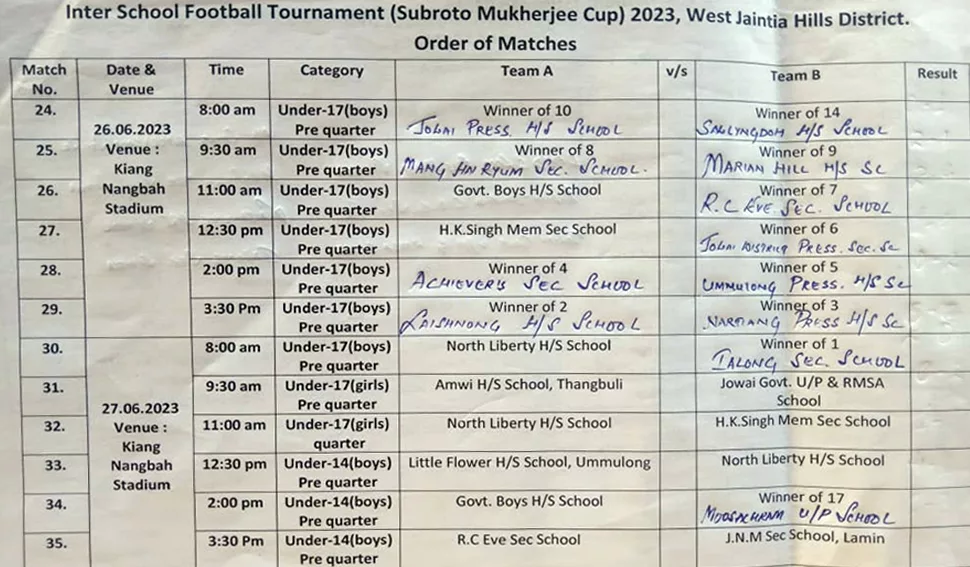 Inter School Football Tournament (Subroto Mukherjee Cup) 2023, West Jaintia Hills District.
Order of Matches
Match No. Date & Venue Time Category Team A v/s Team B Result
26.06.2023 Venue : Kiang Nangbah Stadium
24. 8:00 am Under-17(boys) Pre quarter Winner of 10 JOWAI PRESS. H/S SCHOOL Winner of 14 SAILYNGDOH H/S SCHOOL
25. 9:30 am Under-17(boys) Pre quarter Winner of 8 MANG HN RYUM SEC. SCHOOL. Winner of 9 MARIAN HILL H/S SC
26. 11:00 am Under-17(boys) Pre quarter Govt. Boys H/S School Winner of 7 R.C EVE SEC. SCHOOL
27. 12:30 pm Under-17(boys) Pre quarter H.K.Singh Mem Sec School Winner of 6 JOWAI DISTRICT PRESS. SEC. SC
28. 2:00 pm Under-17(boys) Pre quarter Winner of 4 ACHIEVER'S SEC SCHOOL Winner of 5 UMMULONG PRESS. H/S SC
29. 3:30 Pm Under-17(boys) Pre quarter Winner of 2 LAISHNONG H/S SCHOOL Winner of 3 NARTIANG PRESS H/S SC
27.06.2023 Venue : Kiang Nangbah Stadium
30. 8:00 am Under-17(boys) Pre quarter North Liberty H/S School Winner of 1 IALONG SEC. SCHOOL
31. 9:30 am Under-17(girls) Pre quarter Amwi H/S School, Thangbuli Jowai Govt. U/P & RMSA School
32. 11:00 am Under-17(girls) quarter North Liberty H/S School H.K.Singh Mem Sec School
33. 12:30 pm Under-14(boys) Pre quarter Little Flower H/S School, Ummulong North Liberty H/S School
34. 2:00 pm Under-14(boys) Pre quarter Govt. Boys H/S School Winner of 17 U/P SCHOOL
35. 3:30 Pm Under-14(boys) Pre quarter R.C Eve Sec School J.N.M Sec School, Lamin